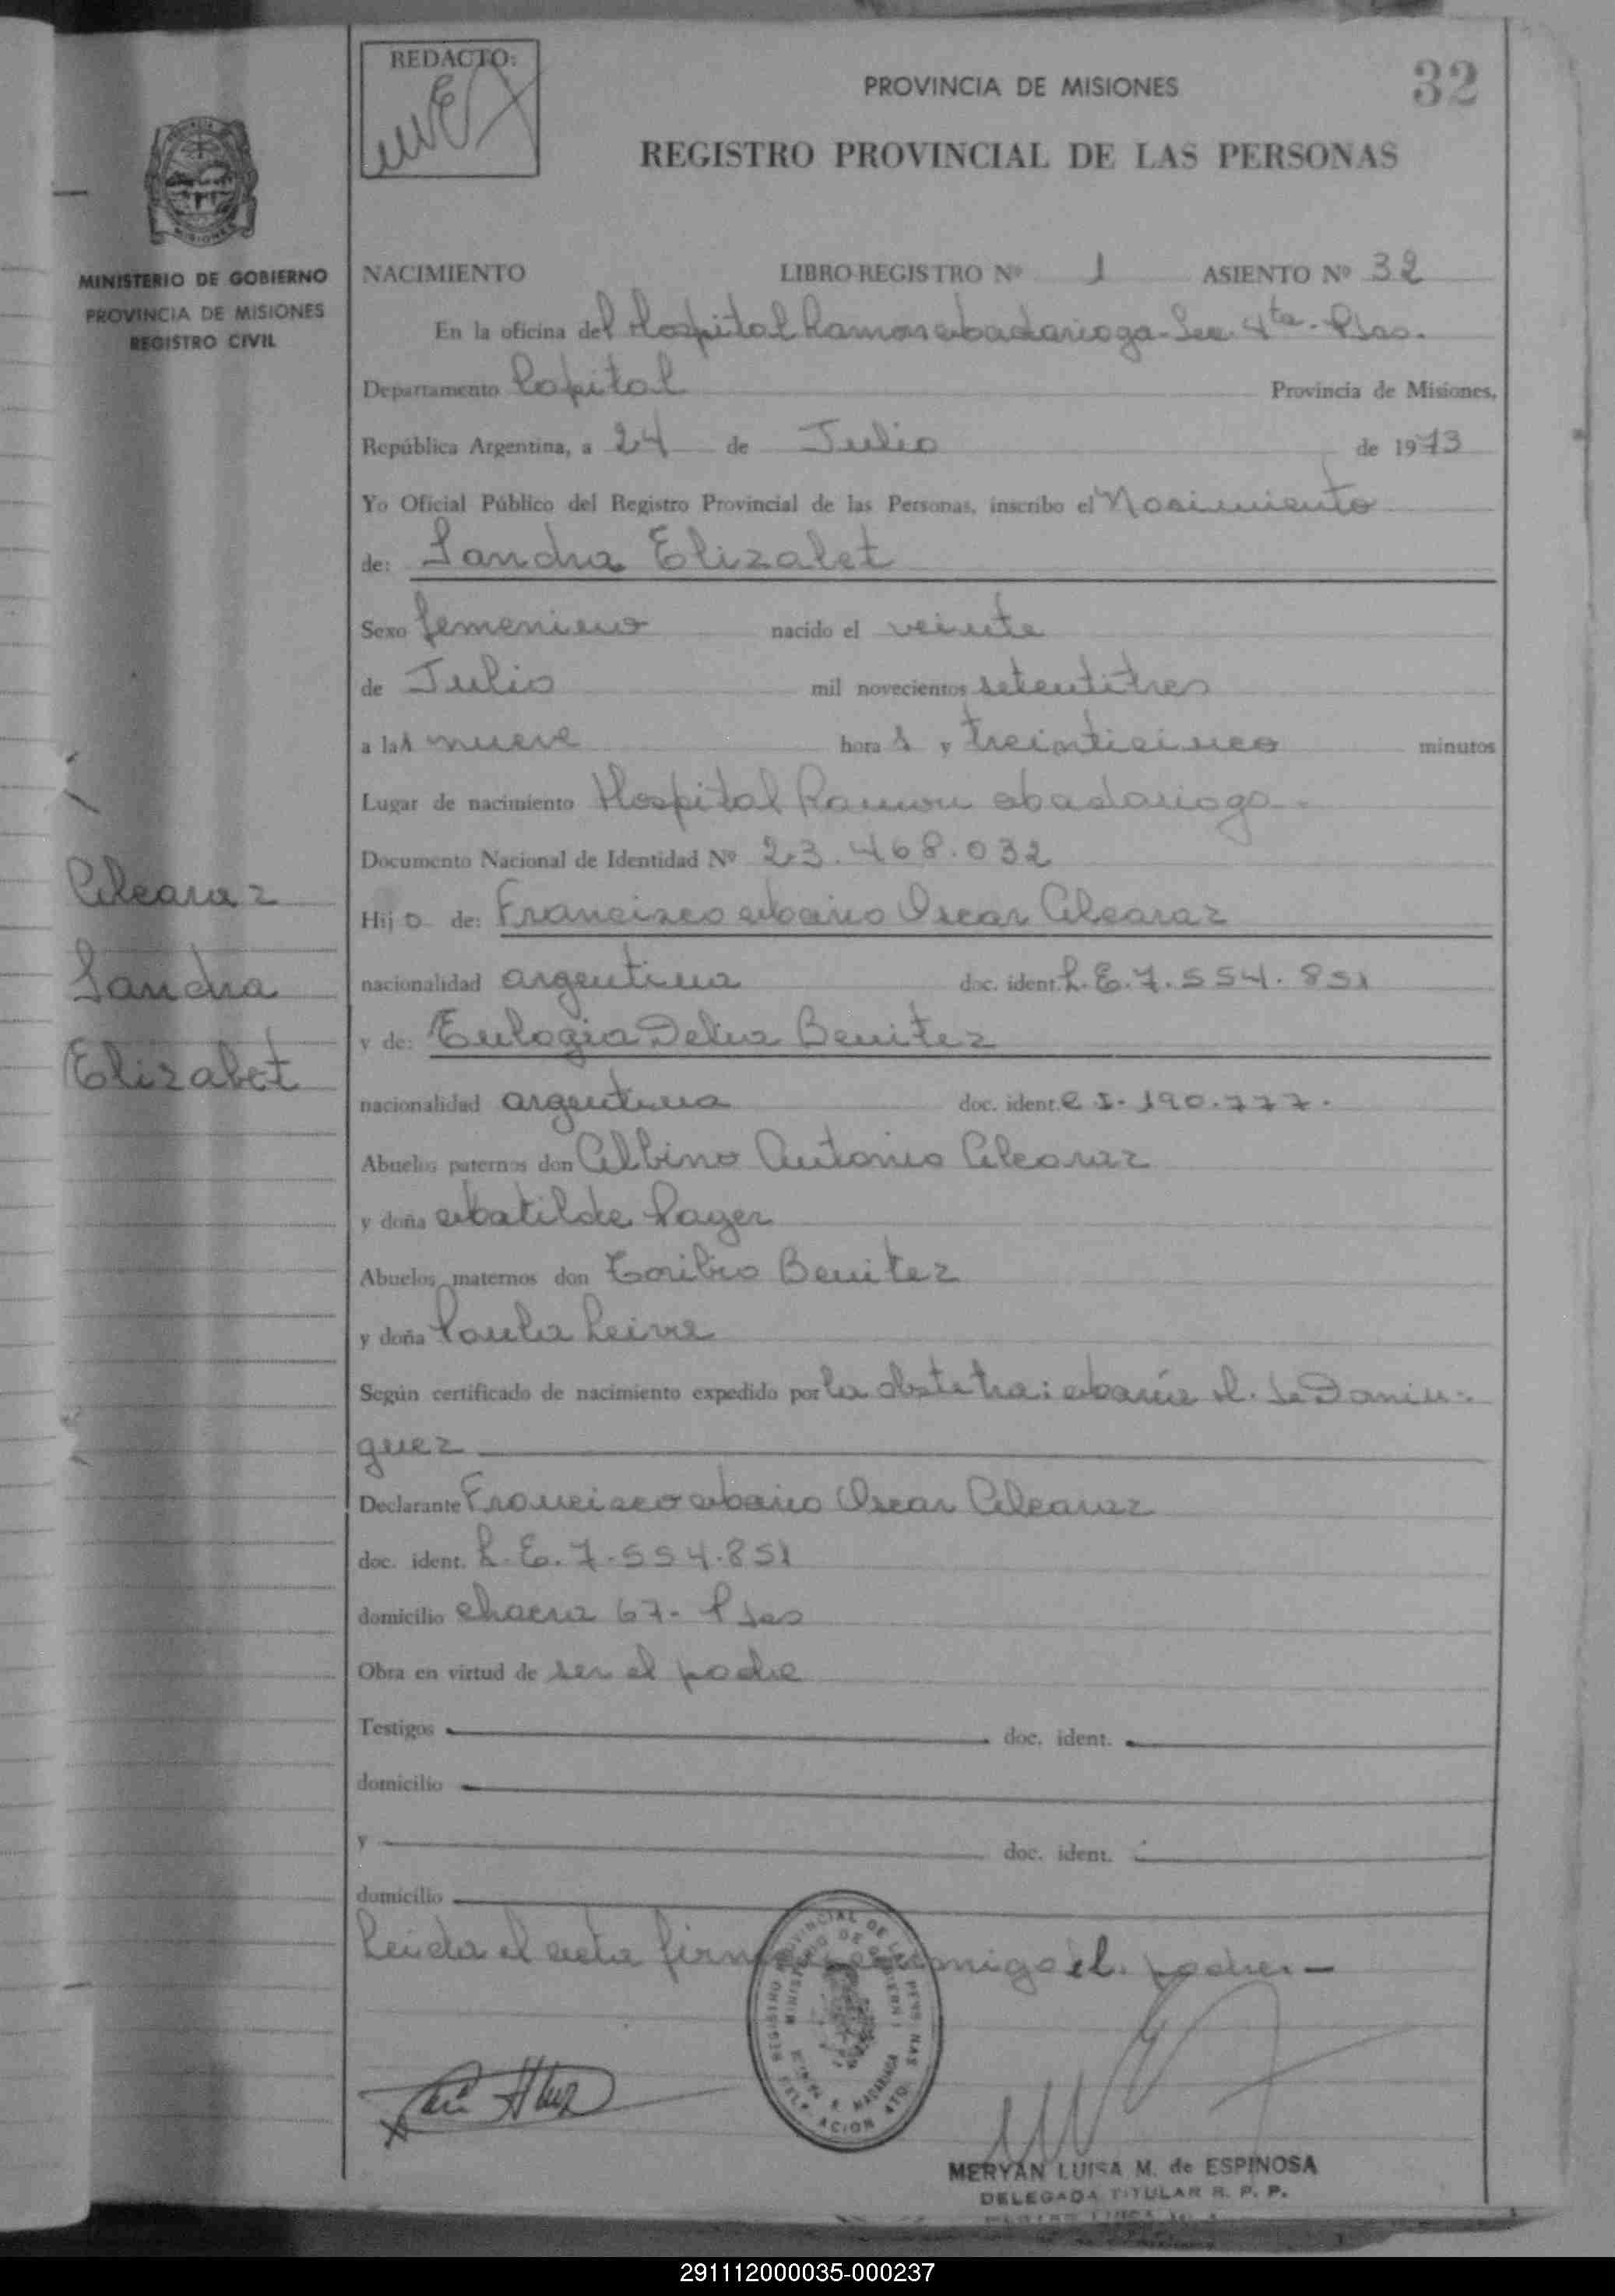 REDACTO:
PROVINCIA DE MISIONES
32
REGISTRO PROVINCIAL DE LAS PERSONAS
MINISTERIO DE GOBIERNO
PROVINCIA DE MISIONES
REGISTRO CIVIL
NACIMIENTO LIBRO-REGISTRO Nº 1 ASIENTO Nº 32
En la oficina del Hospital Ramon Madariaga - Sec. 4ta - Pdas.
Departamento Capital Provincia de Misiones,
República Argentina, a 24 de Julio de 1973
Yo Oficial Público del Registro Provincial de las Personas, inscribo el Nacimiento
de: Sandra Elizabet
Sexo femenino nacido el veinte
de Julio mil novecientos setentitres
a las nueve hora s y treinticinco minutos
Lugar de nacimiento Hospital Ramon Madariaga -
Documento Nacional de Identidad Nº 23.468.032
Alcaraz
Sandra
Elizabet
Hij a de: Francisco Mario Oscar Alcaraz
nacionalidad argentina doc. ident. L.E. 7.554.851
y de: Eulogia Delia Benitez
nacionalidad argentina doc. ident. C.I. 190.777.
Abuelos paternos don Albino Antonio Alcaraz
y doña Matilde
Abuelos maternos don Toribio Benitez
y doña Paula Leiva
Según certificado de nacimiento expedido por la obstetra: María de Domin-
guez
Declarante Francisco Mario Oscar Alcaraz
doc. ident. L.E. 7.554.851
domicilio chacra 67 - Pdas
Obra en virtud de ser el padre
Testigos doc. ident.
domicilio
y doc. ident.
domicilio
Leida el acta firma conmigo el padre. -
REGISTRO PROVINCIAL DE LAS PERSONAS
MINISTERIO DE GOBIERNO
R. MADARIAGA
MERYAN LUISA M. de ESPINOSA
DELEGADA TITULAR R. P. P.
291112000035-000237